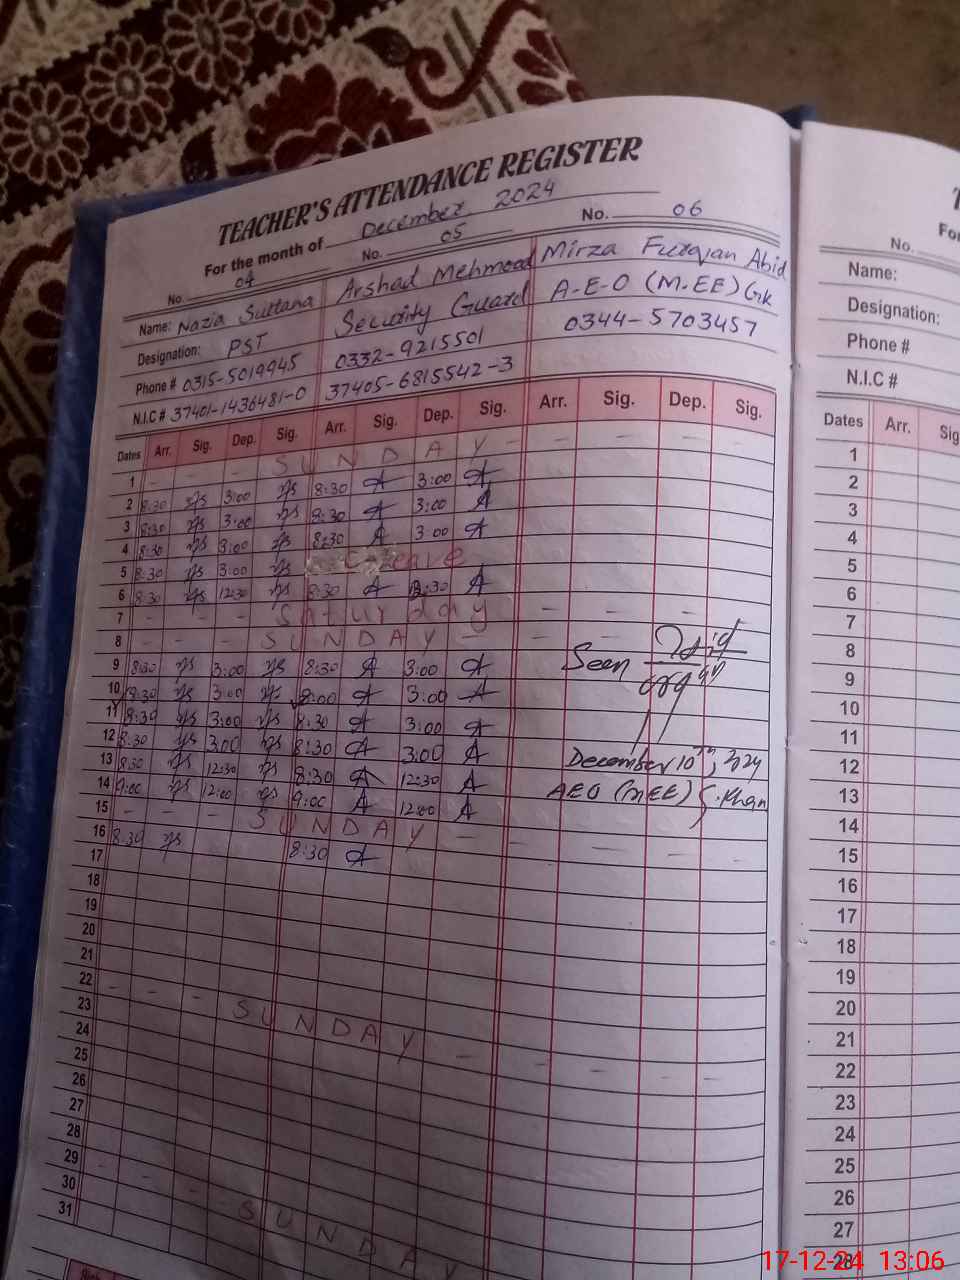 TEACHER'S ATTENDANCE REGISTER
For the month of December 2024
No. 04 No. 05 No. 06
Name: Nazia Sultana Arshad Mehmood Mirza Furqan Abid
Designation: PST Security Guard A-E-O (M-EE) GK
Phone # 0315-5019945 0332-9215501 0344-5703457
N.I.C # 37401-1436481-0 37405-6815542-3
Dates Arr. Sig. Dep. Sig. Arr. Sig. Dep. Sig. Arr. Sig. Dep. Sig.
1 - - - SUNDAY - - - - -
2 8:30 ns 3:00 ns 8:30 A 3:00 A
3 8:30 ns 3:00 ns 8:30 A 3:00 A
4 8:30 ns 3:00 ns 8:30 A 3:00 A
5 8:30 ns 3:00 ns Leave
6 8:30 ns 12:30 ns 8:30 A 12:30 A
7 - - - Saturday - - - -
8 - - - SUNDAY - - - -
9 8:30 ns 3:00 ns 8:30 A 3:00 A Seen
10 8:30 ns 3:00 ns 8:00 A 3:00 A
11 8:30 ns 3:00 ns 8:30 A 3:00 A
12 8:30 ns 3:00 ns 8:30 A 3:00 A December 10th, 2024
13 8:30 ns 12:30 ns 8:30 A 12:30 A AEO (MEE) G.Khan
14 9:00 ns 12:00 ns 9:00 A 12:00 A
15 - - - SUNDAY - - - - -
16 8:30 ns 8:30 A
17
18
19
20
21
22 - - - SUNDAY - - - - -
23
24
25
26
27
28
29
30 SUNDAY
31
No.
Name:
Designation:
Phone #
N.I.C #
Dates Arr.
1
2
3
4
5
6
7
8
9
10
11
12
13
14
15
16
17
18
19
20
21
22
23
24
25
26
27
28
17-12-24 13:06